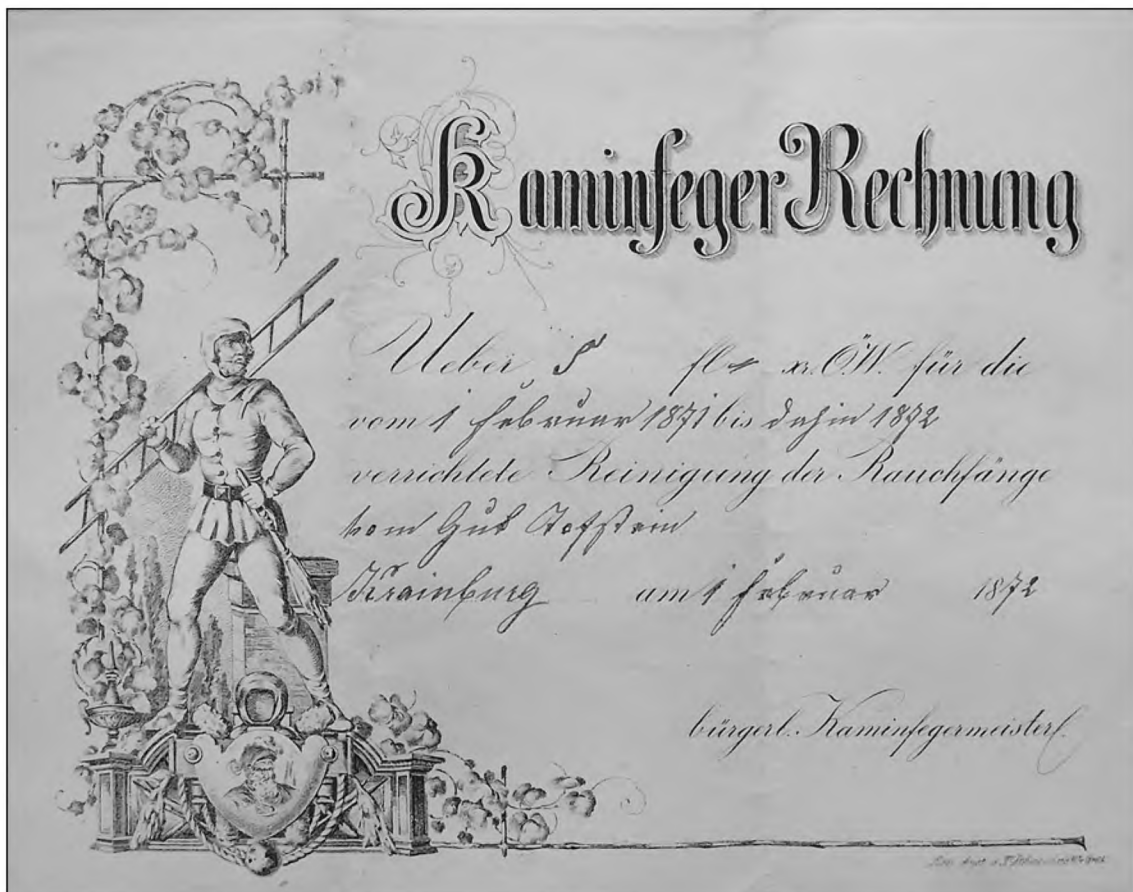 Kaminfeger Rechnung
Ueber 5 fl xr. Ö.W. für die
vom 1 Februar 1871 bis dahin 1872
verrichtete Reinigung der Rauchfänge
vom Gut
Krainburg am 1 Februar 1872
bürgerl. Kaminfegermeister